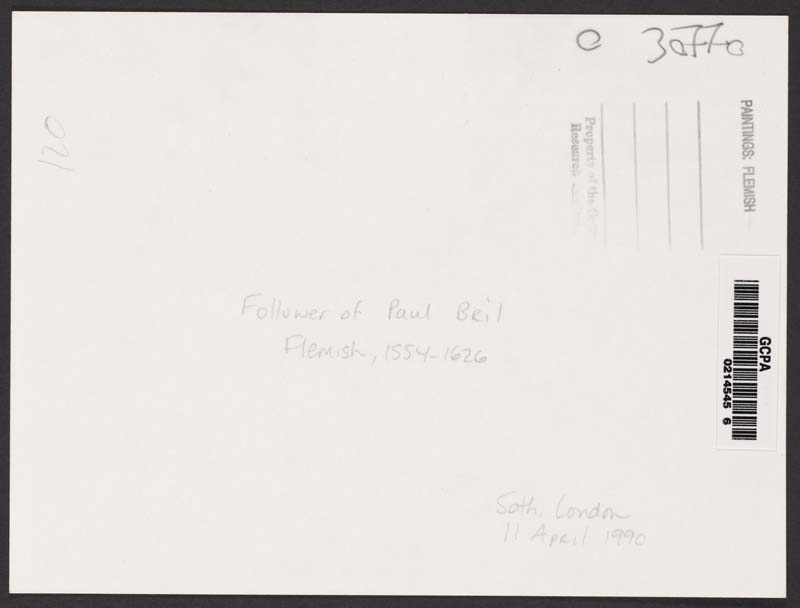 30770
PAINTINGS: FLEMISH
Property of the
Research
021
GCPA
0214545 6
Follower of Paul Bril
Flemish, 1554-1626
Soth. London
11 April 1990